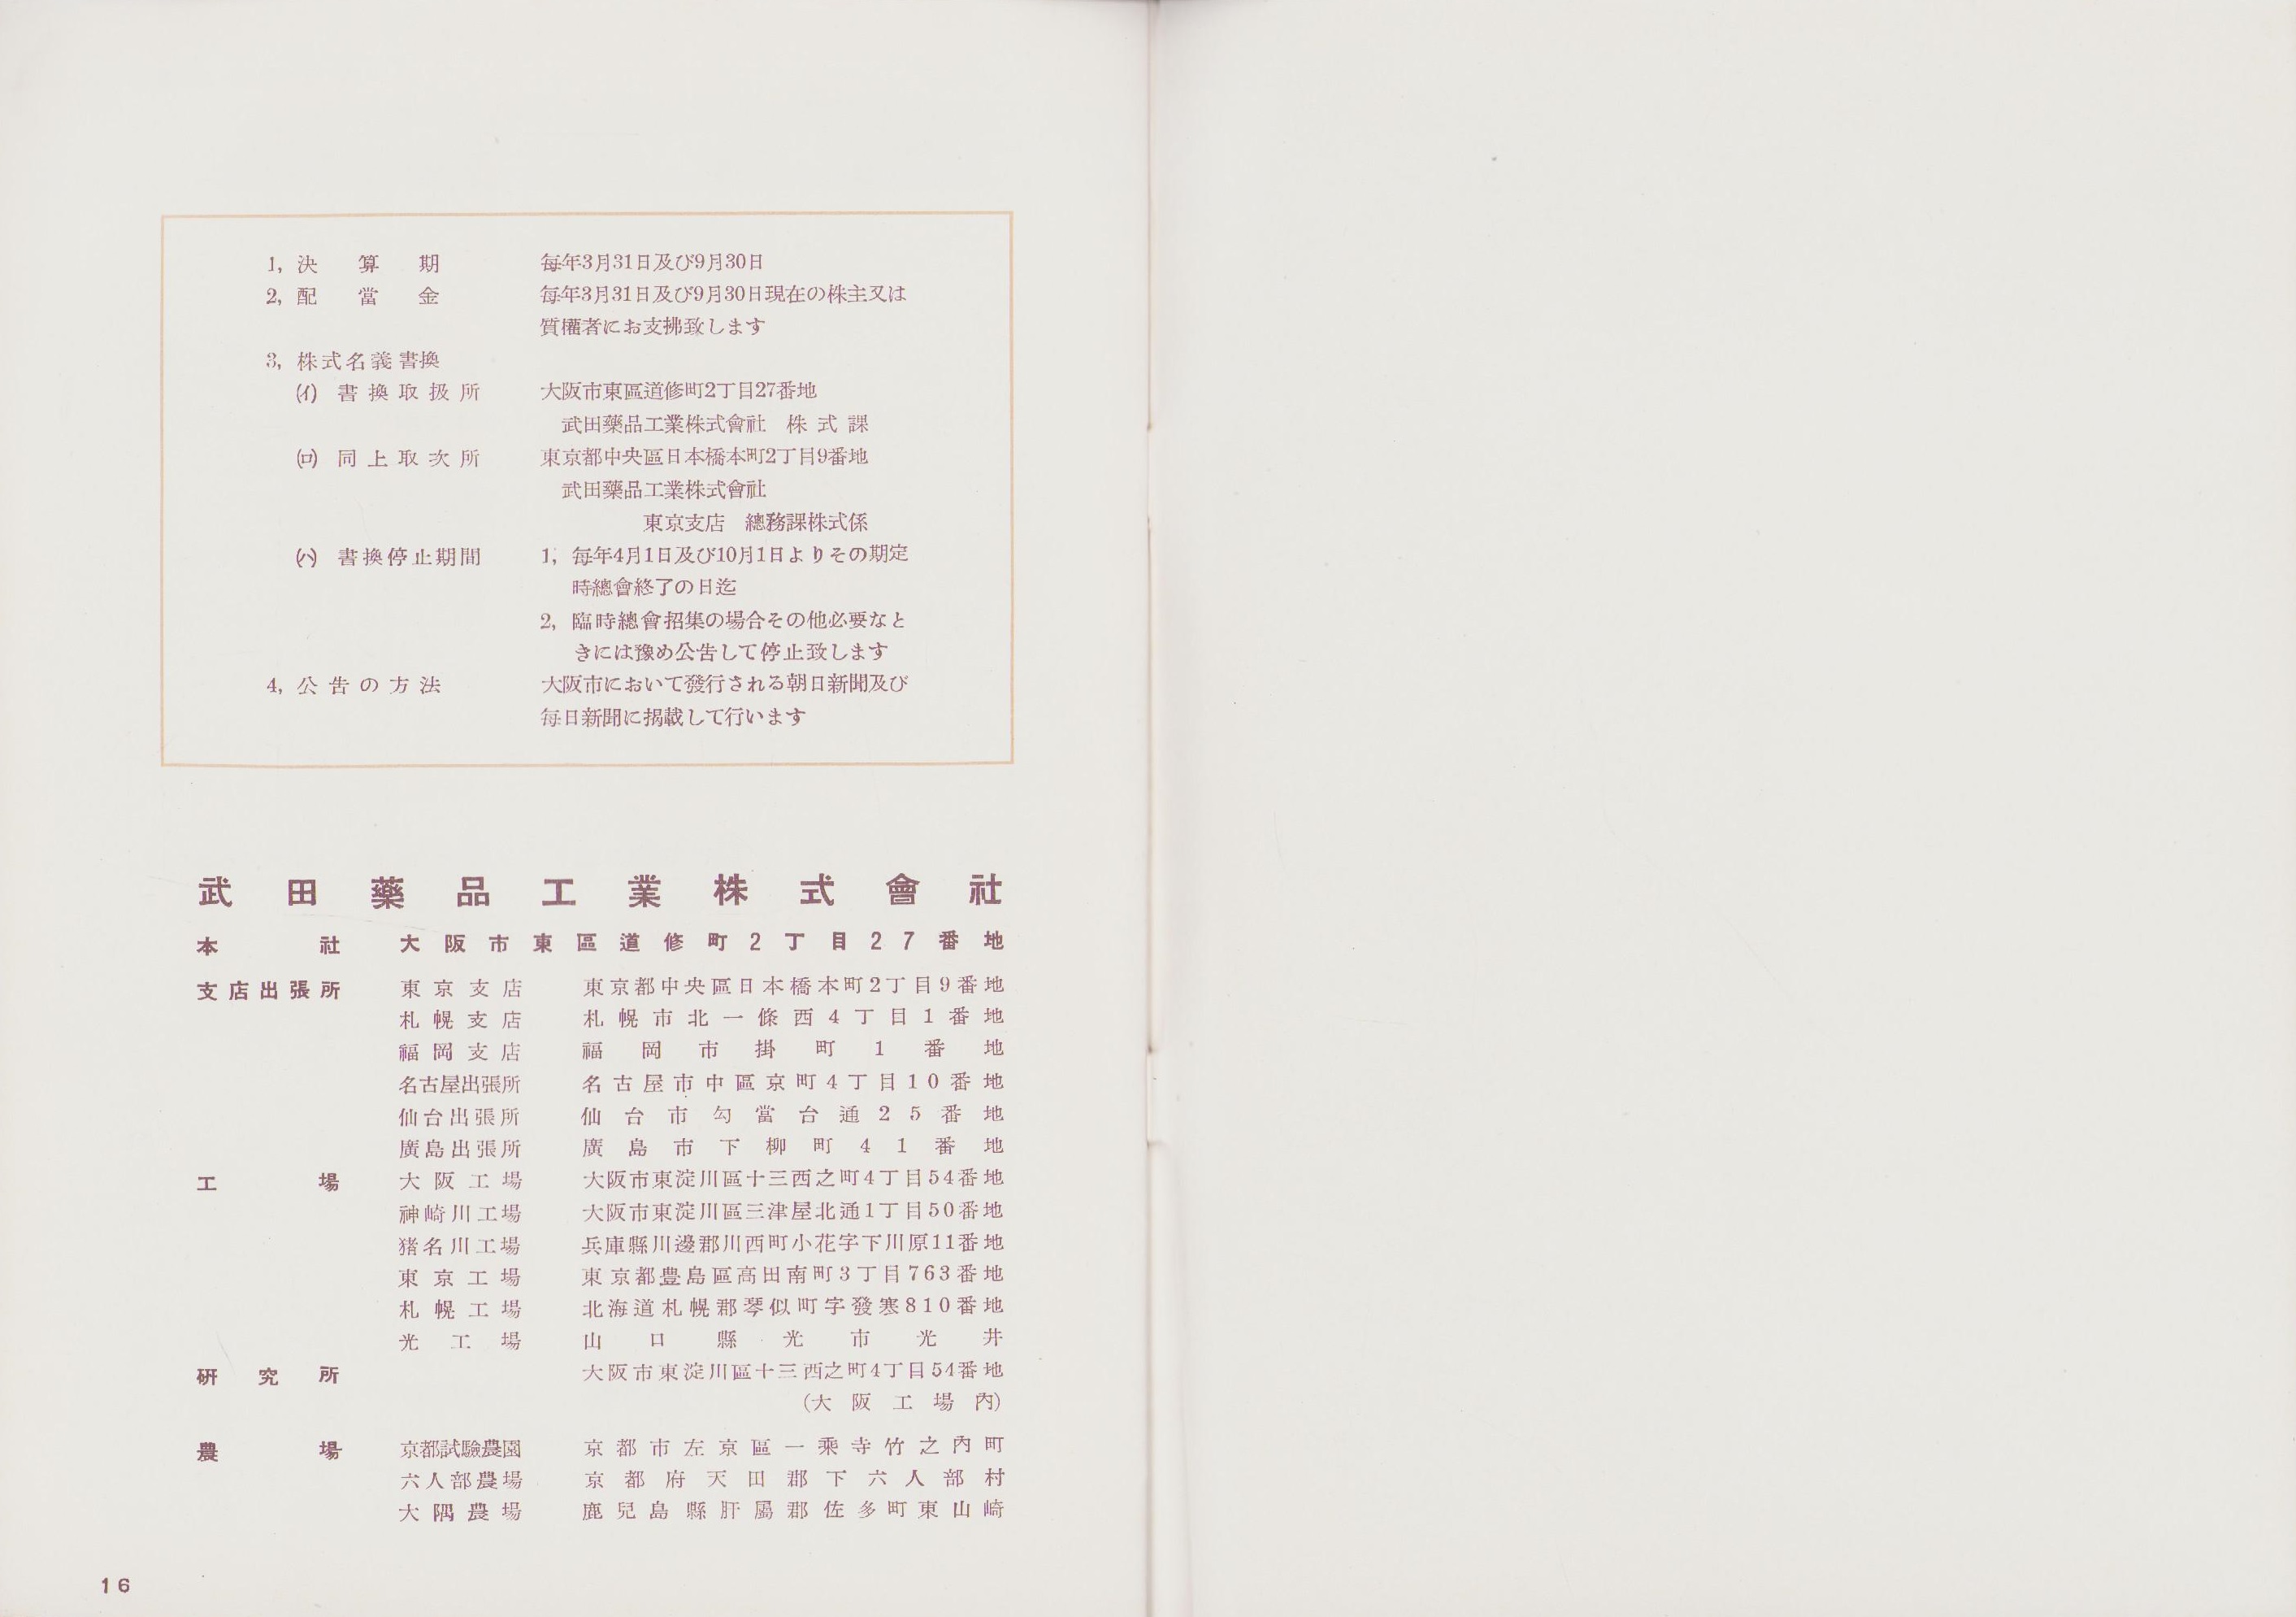 1, 決算期 每年3月31日及び9月30日
2, 配當金 每年3月31日及び9月30日現在の株主又は
質權者にお支拂致します
3, 株式名義書換
(イ) 書換取扱所 大阪市東區道修町2丁目27番地
武田藥品工業株式會社 株式課
(ロ) 同上取次所 東京都中央區日本橋本町2丁目9番地
武田藥品工業株式會社
東京支店 總務課株式係
(ハ) 書換停止期間 1, 每年4月1日及び10月1日よりその期定
時總會終了の日迄
2, 臨時總會招集の場合その他必要なと
きには豫め公告して停止致します
4, 公告の方法 大阪市において發行される朝日新聞及び
每日新聞に掲載して行います
武田藥品工業株式會社
本社 大阪市東區道修町2丁目27番地
支店出張所 東京支店 東京都中央區日本橋本町2丁目9番地
札幌支店 札幌市北一條西4丁目1番地
福岡支店 福岡市掛町1番地
名古屋出張所 名古屋市中區京町4丁目10番地
仙台出張所 仙台市勾當台通25番地
廣島出張所 廣島市下柳町41番地
工場 大阪工場 大阪市東淀川區十三西之町4丁目54番地
神崎川工場 大阪市東淀川區三津屋北通1丁目50番地
猪名川工場 兵庫縣川邊郡川西町小花字下川原11番地
東京工場 東京都豊島區高田南町3丁目763番地
札幌工場 北海道札幌郡琴似町字發寒810番地
光工場 山口縣光市光井
研究所 大阪市東淀川區十三西之町4丁目54番地
(大阪工場內)
農場 京都試驗農園 京都市左京區一乘寺竹之內町
六人部農場 京都府天田郡下六人部村
大隅農場 鹿兒島縣肝屬郡佐多町東山崎
16